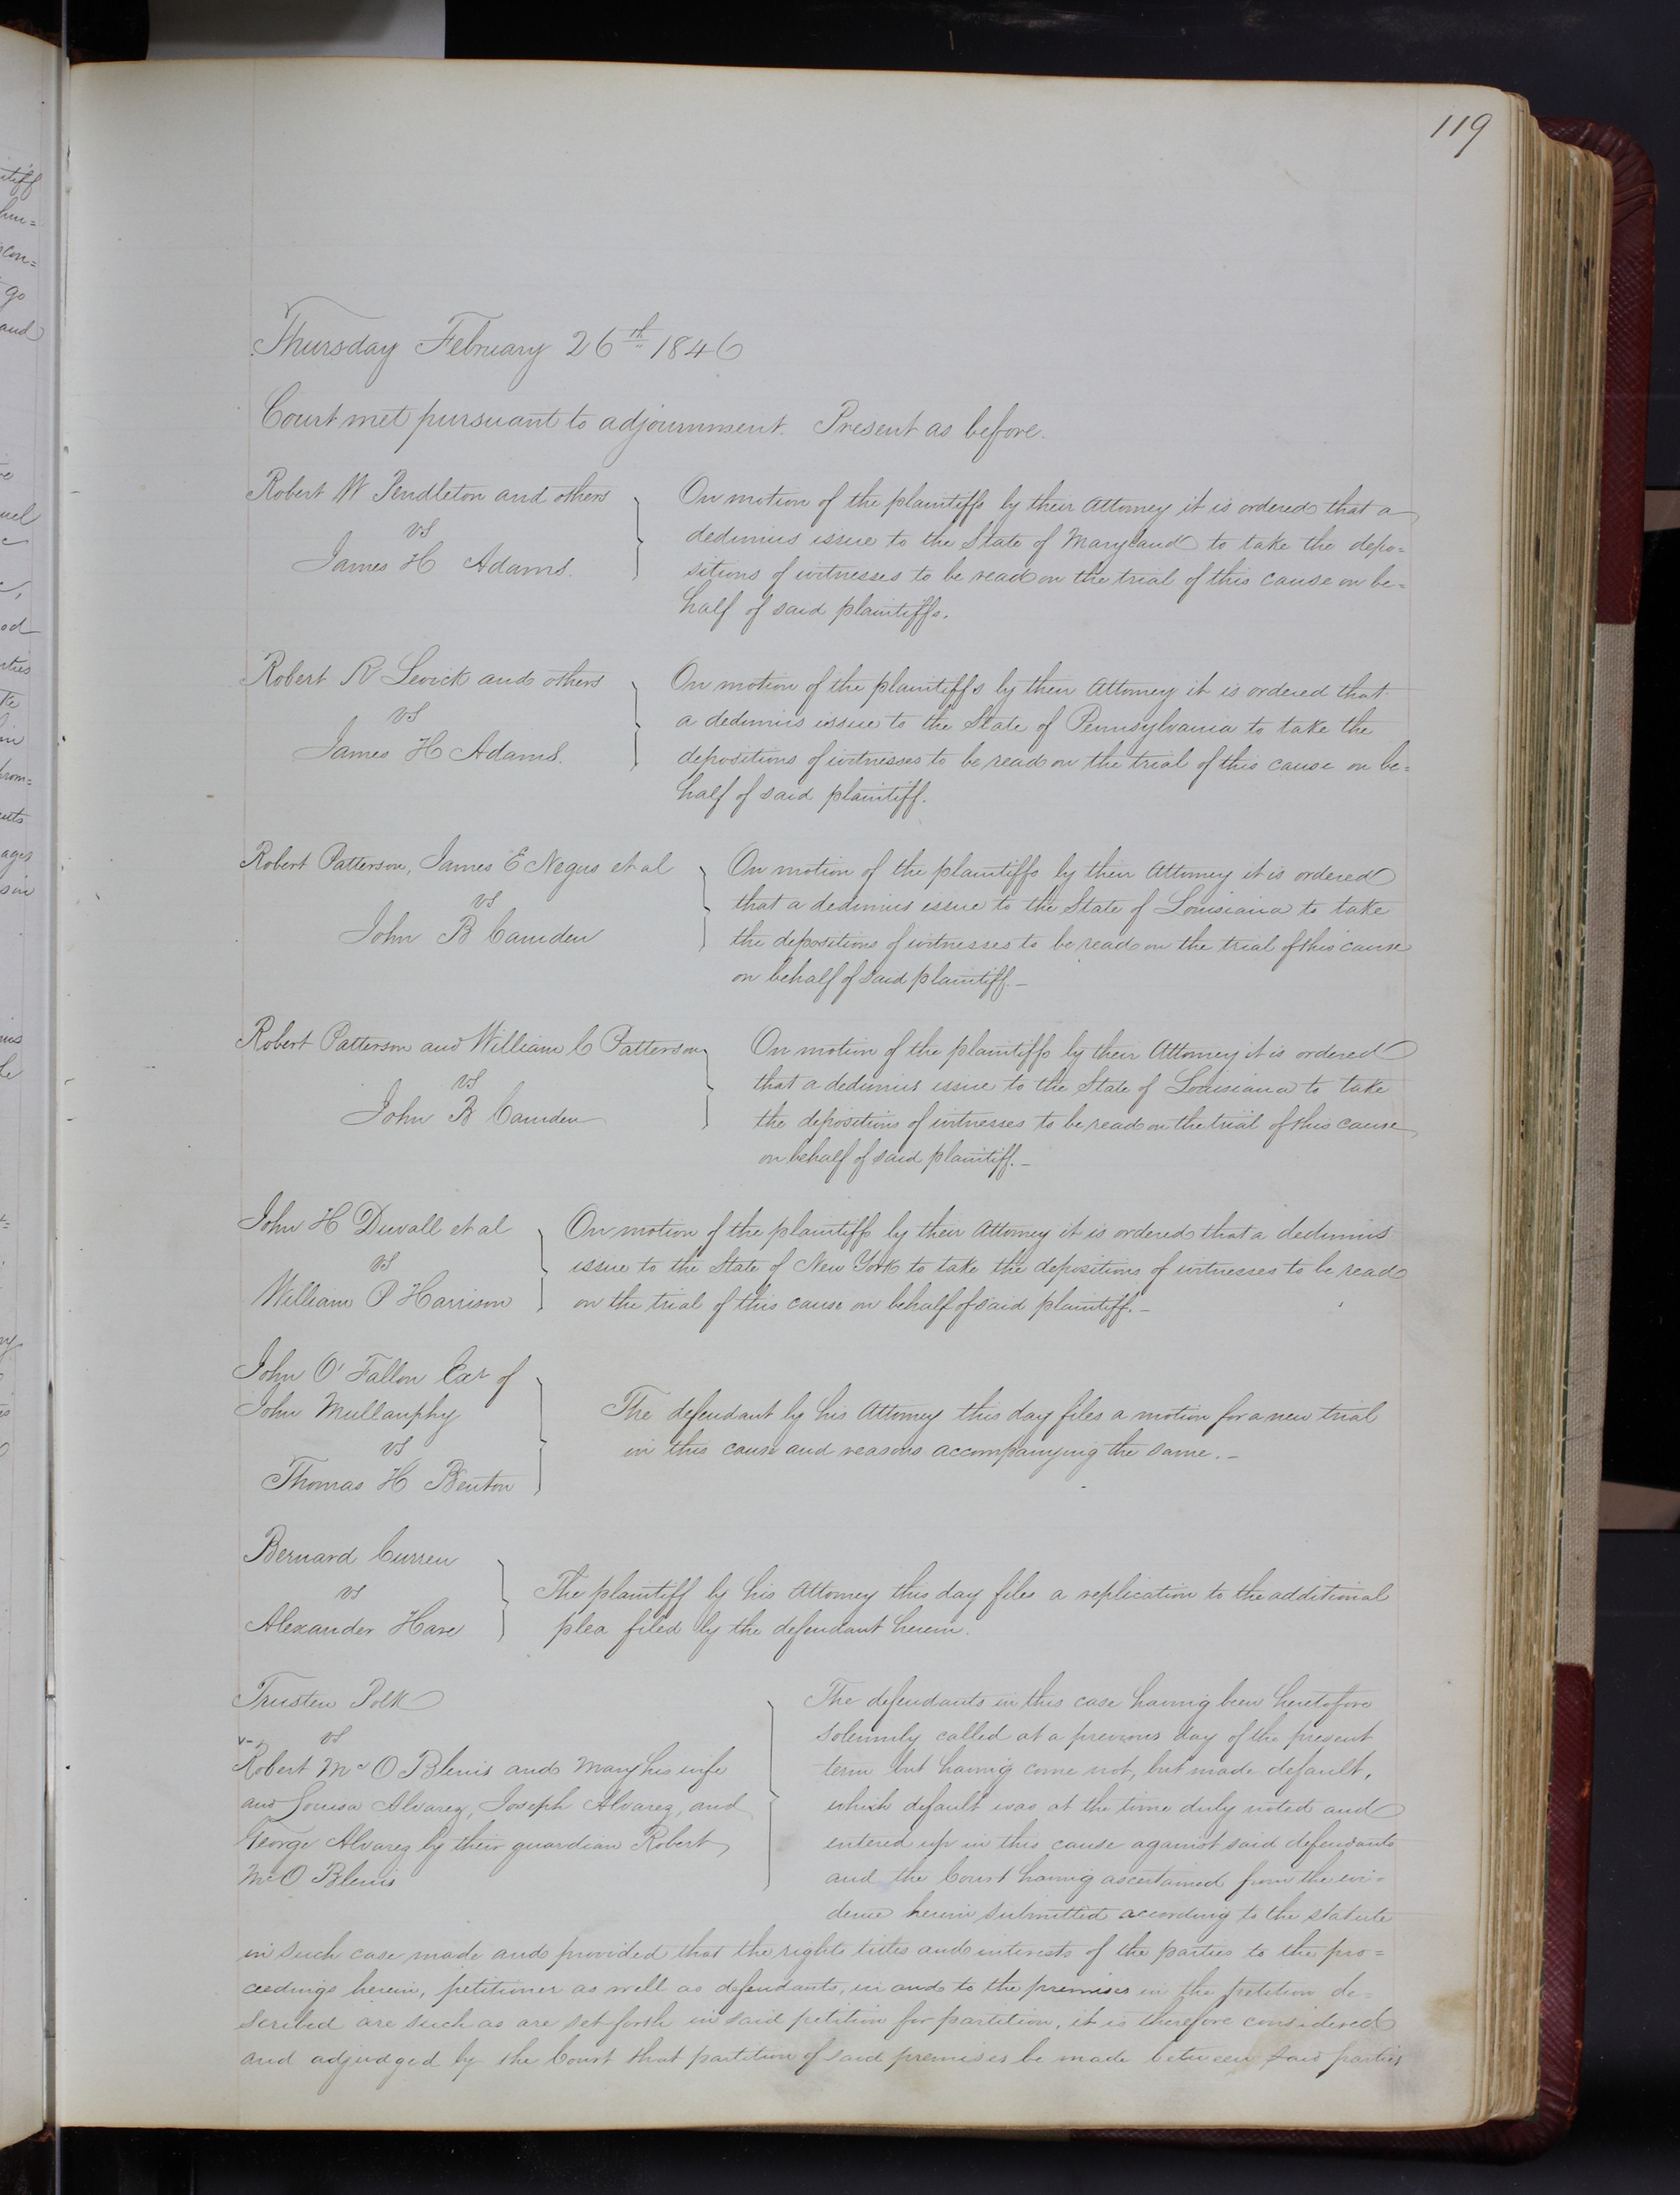 119
Thursday February 26th 1846
Court met pursuant to adjournment. Present as before.
Robert W Pendleton and others
vs
James H Adams.
On motion of the plaintiffs by their Attorney it is ordered that a
dedimus issue to the State of Maryland to take the depo=
sitions of witnesses to be read on the trial of this cause on be=
half of said plaintiffs.
Robert R Levick and others
vs
James H Adams.
On motion of the plaintiffs by their Attorney it is ordered that
a dedimus issue to the State of Pennsylvania to take the
depositions of witnesses to be read on the trial of this cause on be=
half of said plaintiff.
Robert Patterson, James E Negus et al
vs
John B Camden
On motion of the plaintiffs by their Attorney it is ordered
that a dedimus issue to the State of Louisiana to take
the depositions of witnesses to be read on the trial of this cause
on behalf of said plaintiff.–
Robert Patterson and William C Patterson
vs
John B Camden
On motion of the plaintiffs by their Attorney it is ordered
that a dedimus issue to the State of Louisiana to take
the depositions of witnesses to be read on the trial of this cause
on behalf of said plaintiff.–
John H Duvall et al
vs
William P Harrison
On motion of the plaintiffs by their Attorney it is ordered that a dedimus
issue to the State of New York to take the depositions of witnesses to be read
on the trial of this cause on behalf of said plaintiff.–
John O'Fallon Exr of
John Mullanphy
vs
Thomas H Benton
The defendant by his Attorney this day files a motion for a new trial
in this cause and reasons accompanying the same.–
Bernard Curren
vs
Alexander Hare
The plaintiff by his Attorney this day files a replication to the additional
plea filed by the defendant herein.
Trusten Polk
vs
Robert Mc O Blenis and Mary his wife
and Louisa Alvarez, Joseph Alvarez, and
George Alvarez by their guardian Robert
Mc O Blenis
The defendants in this case having been heretofore
solemnly called at a previous day of the present
term but having come not, but made default,
which default was at the time duly noted and
entered up in this cause against said defendants
and the Court having ascertained from the evi=
dence herein submitted according to the statute
in such case made and provided that the rights titles and interests of the parties to the pro=
ceedings herein, petitioner as well as defendants, in and to the premises in the petition de=
scribed are such as are set forth in said petition for partition, it is therefore considered
and adjudged by the Court that partition of said premises be made between said parties